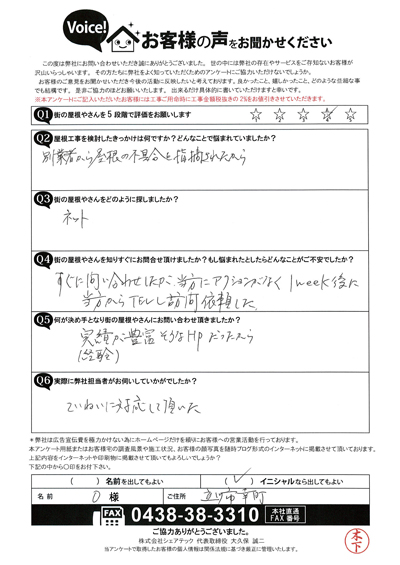 Voice!
お客様の声をお聞かせください
この度は弊社にお問い合わせいただき誠にありがとうございました。世の中には弊社の存在やサービスをご存知ないお客様が
沢山いらっしゃいます。その方たちに弊社をよく知っていただくためのアンケートにご協力いただけないでしょうか。
お客様のご意見をお聞かせいただき今後の活動に反映したいと考えております。良かったこと、嬉しかったこと、どのような些細な事
でも結構です。是非ご協力のほどお願いいたします。出来るだけ具体的に書いていただけますと幸いです。
※本アンケートにご記入いただいたお客様には工事ご用命時に工事金額税抜きの2%をお値引きさせていただきます。
Q1 街の屋根やさんを5段階で評価をお願いします ☆ ☆ ☆ ☆ ☆
Q2 屋根工事を検討したきっかけは何ですか？どんなことで悩まれていましたか？
別業者から屋根の不具合を指摘されたから
Q3 街の屋根やさんをどのように探しましたか？
ネット
Q4 街の屋根やさんを知りすぐにお問合せ頂けましたか？もし悩まれたとしたらどんなことがご不安でしたか？
すぐに問い合わせしたが、当方にアクションがなく1week後に
当方からTELし訪問依頼した
Q5 何が決め手となり街の屋根やさんにお問い合わせ頂きましたか？
実績が豊富そうなHPだったから
(経験)
Q6 実際に弊社担当者がお伺いしていかがでしたか？
ていねいに対応して頂いた
＊弊社は広告宣伝費を極力かけない為にホームページだけを頼りにお客様への営業活動を行っております。
本アンケート用紙またはお客様宅の調査風景や施工状況、お客様の顔写真を随時ブログ形式のインターネットに掲載させて頂いております。
上記内容をインターネットや印刷物に掲載させて頂いてもよろしいでしょうか？
下記の中から〇印をお付下さい。
( ) 名前を出してもよい (✓) イニシャルなら出してもよい
名前 O 様 ご住所 市幸町
FAX 0438-38-3310 本社直通 FAX番号
ご協力ありがとうございました。
株式会社シェアテック 代表取締役 大久保 誠二
当アンケートで取得したお客様の個人情報は関係法規に基づき厳正に管理いたします。
木下